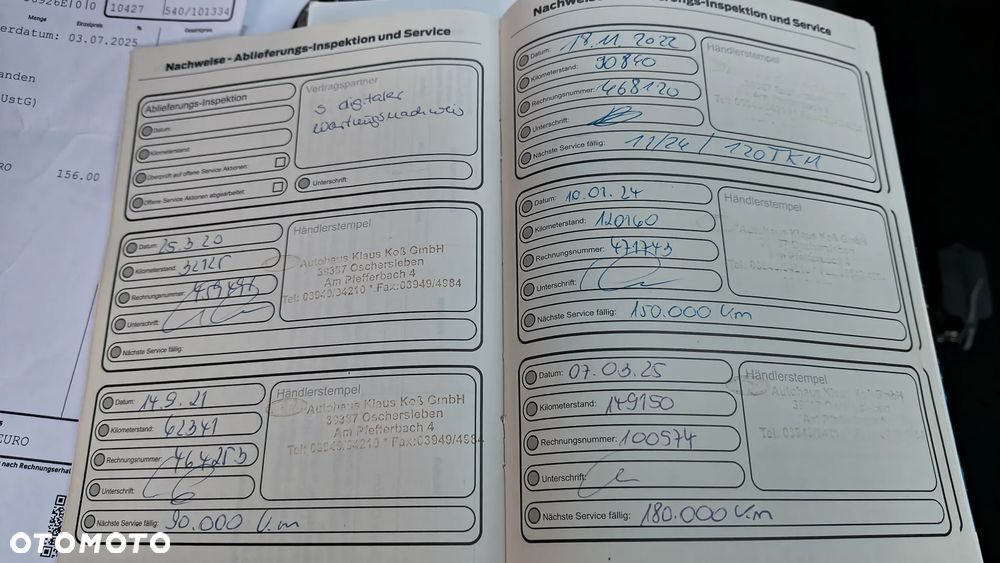 10427
540/101334
Menge
Einzelpreis
Gesamtpreis
erdatum: 03.07.2025
anden
UStG)
156.00
EURO
nach Rechnungserhal
Nachweise - Ablieferungs-Inspektion und Service
Ablieferungs-Inspektion
Datum:
Kilometerstand:
Überprüft auf offene Service Aktionen:
Offene Service Aktionen abgearbeitet:
Vertragspartner
s digitaler
Wartungsnachweis
Unterschrift:
Datum: 25.3.20
Kilometerstand: 32125
Rechnungsnummer:
Unterschrift:
Händlerstempel
Autohaus Klaus Koß GmbH
39387 Oschersleben
Am Pfefferbach 4
Tel: 03949/94210 * Fax:03949/4984
Nächste Service fällig:
Datum: 14.9.21
Kilometerstand: 62341
Rechnungsnummer: 464253
Unterschrift:
Händlerstempel
Autohaus Klaus Koß GmbH
39387 Oschersleben
Am Pfefferbach 4
Tel: 03949/94210 * Fax:03949/4984
Nächste Service fällig: 90.000 km
Nachweise - Ablieferungs-Inspektion und Service
Datum: 18.11.2022
Kilometerstand: 90840
Rechnungsnummer: 468120
Unterschrift:
Händlerstempel
Nächste Service fällig: 11/24 / 120TKM
Datum: 10.01.24
Kilometerstand: 120160
Rechnungsnummer: 471743
Unterschrift:
Händlerstempel
Nächste Service fällig: 150.000 km
Datum: 07.03.25
Kilometerstand: 149150
Rechnungsnummer: 100574
Unterschrift:
Händlerstempel
Nächste Service fällig: 180.000 km
OTOMOTO